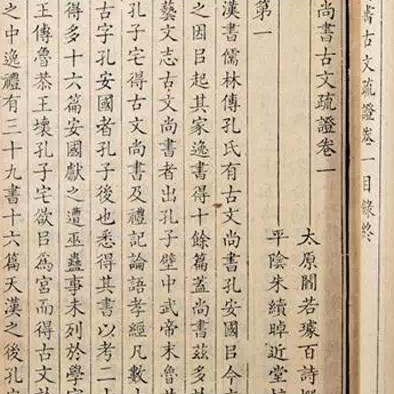 書古文疏證卷一目錄終
尚書古文疏證卷一
太原閻若璩百詩
平陰朱續晫近堂
第一
漢書儒林傳孔氏有古文尚書孔安國㠯今
之因㠯起其家逸書得十餘篇蓋尚書茲多
藝文志古文尚書者出孔子壁中武帝末魯
孔子宅得古文尚書及禮記論語孝經凡數
古字孔安國者孔子後也悉得其書以考二
得多十六篇安國獻之遭巫蠱事未列於學
王傳魯恭王壞孔子宅欲㠯爲宮而得古文
之中逸禮有三十九書十六篇天漢之後孔